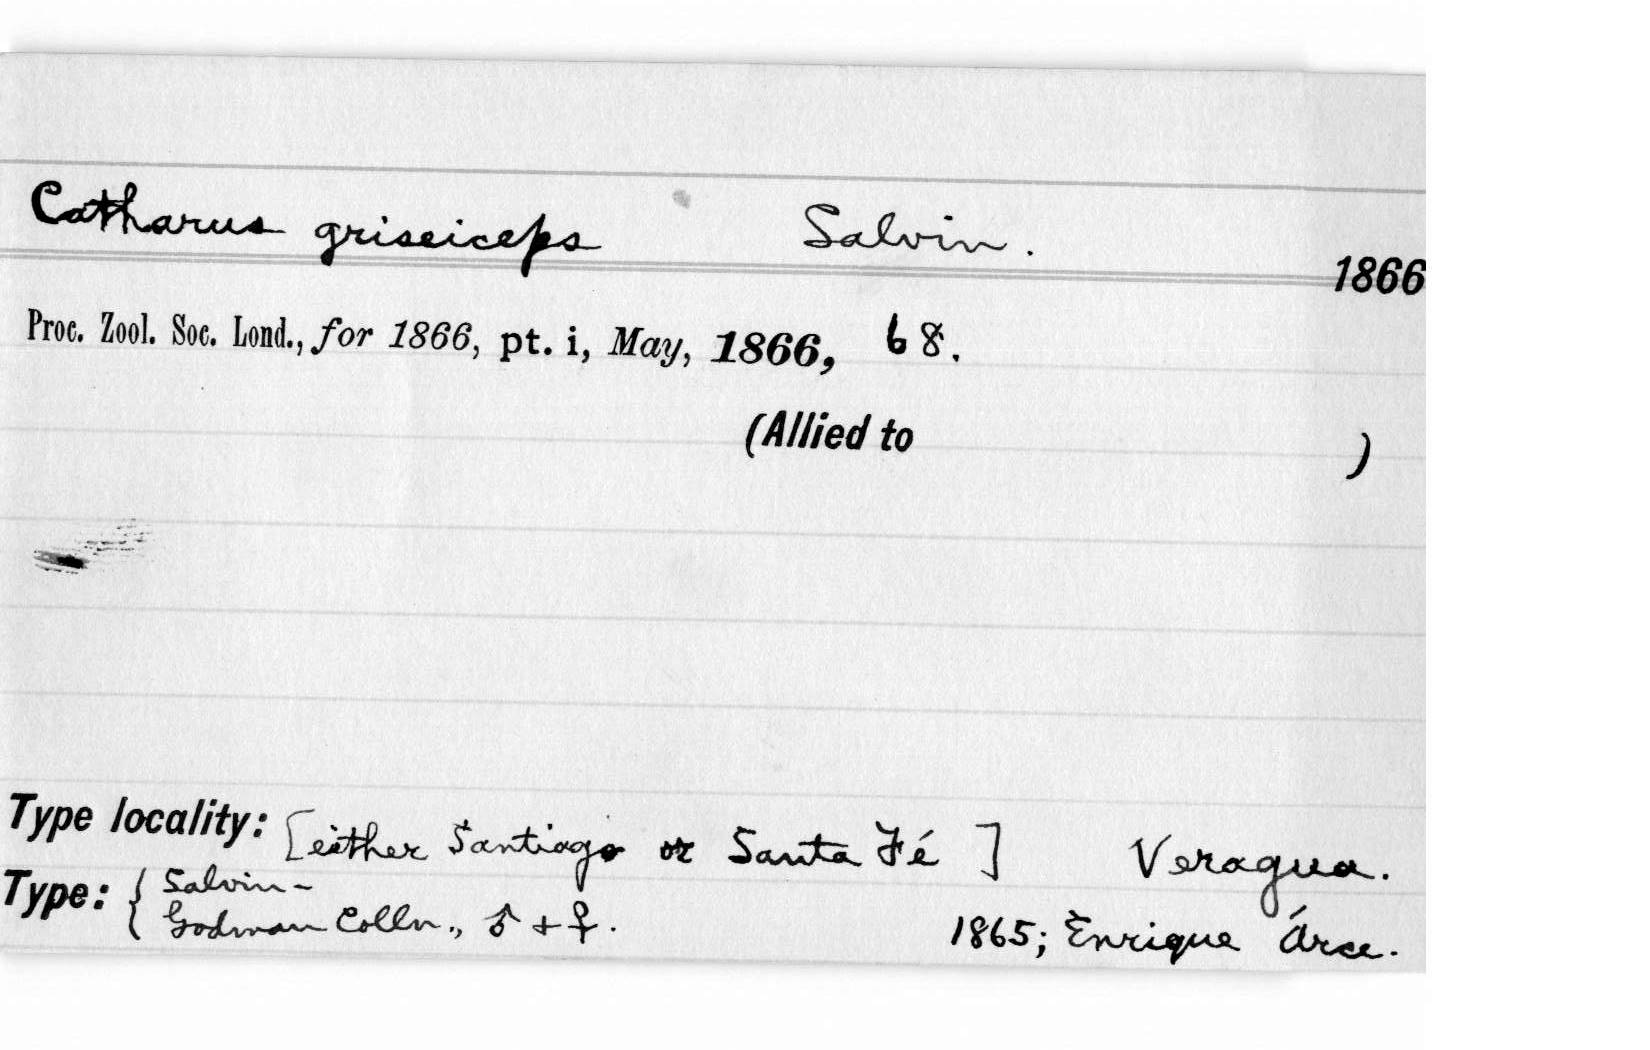 Catharus griseiceps Salvin.
1866
Proc. Zool. Soc. Lond., for 1866, pt. i, May, 1866, 68.
(Allied to )
Type locality: [either Santiago or Santa Fé ] Veragua.
Type: { Salvin-
Godman Colln., ♂ + ♀. 1865; Enrique Árce.